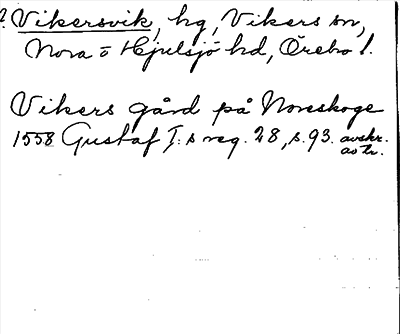 ? Vikersvik, hg, Vikers sn,
Nora o Hjulsjö hd, Örebro l.
Vikers gård på Noreskoge
1558 Gustaf I:s reg. 28, s. 93. avskr.
av tr.